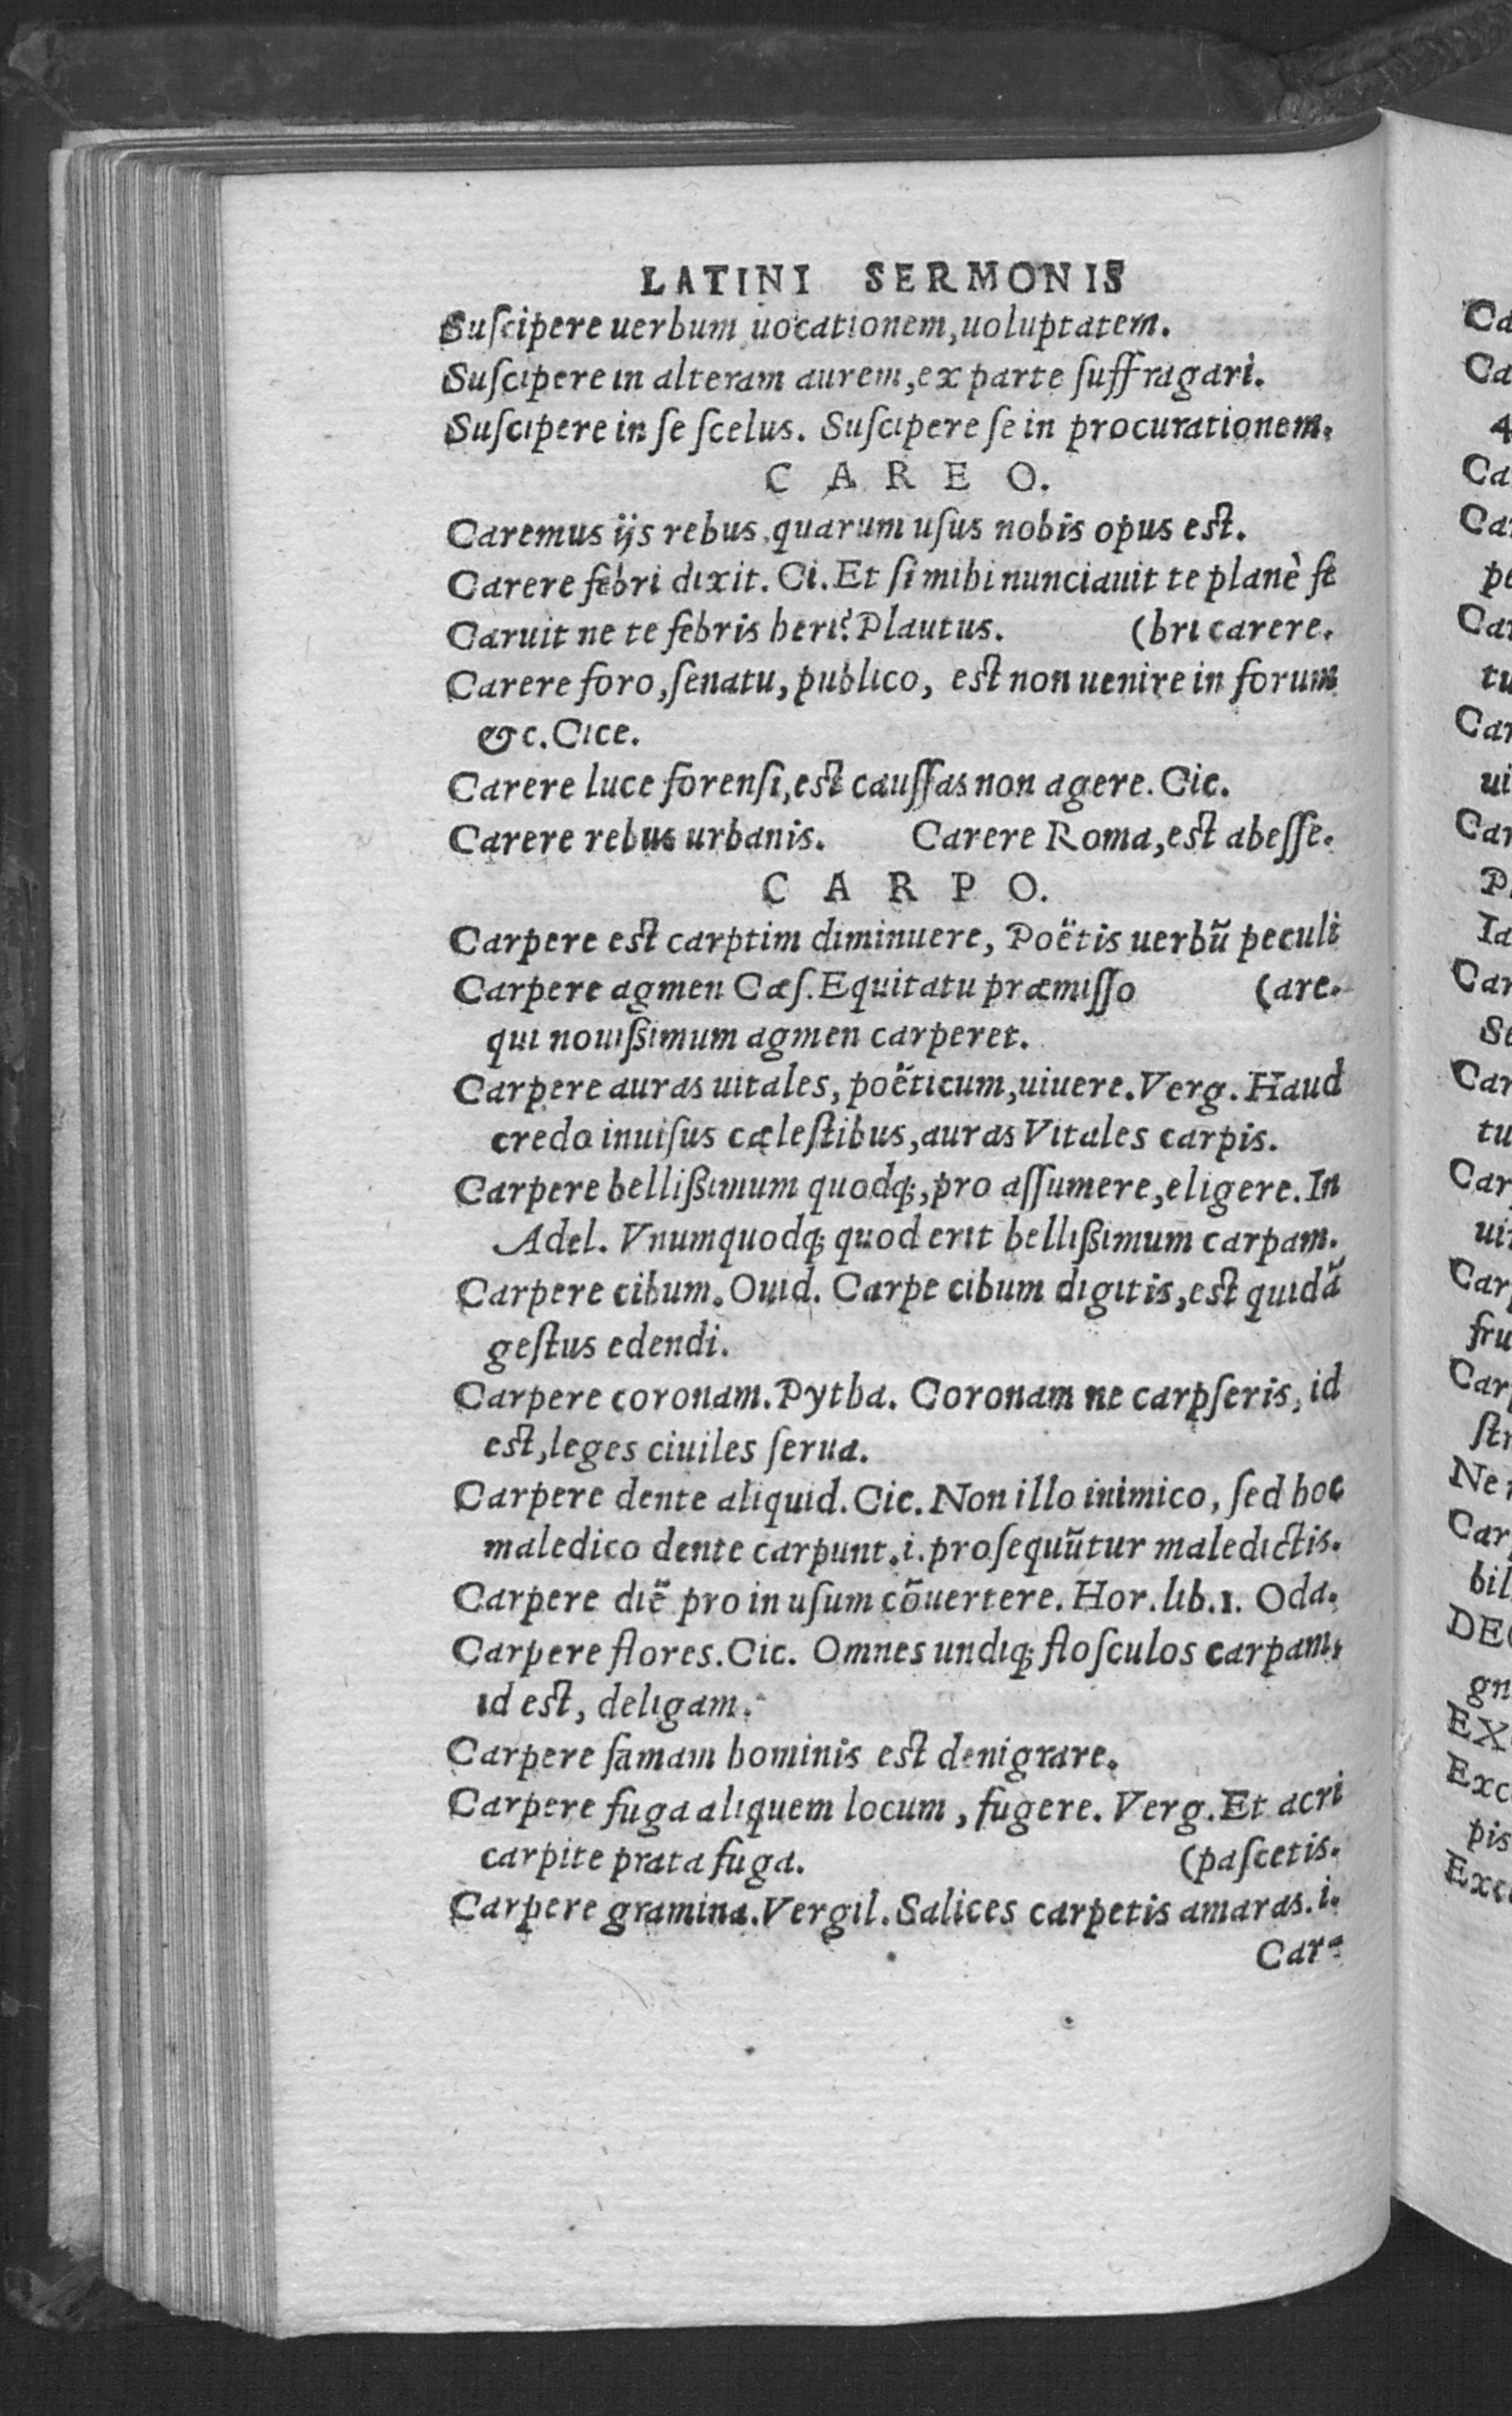 LATINI SERMONIS
Suſcipere uerbum uocationem, uoluptatem.
Suſcipere in alteram aurem, ex parte ſuffragari.
Suſcipere in ſe ſcelus. Suſcipere ſe in procurationem.
CAREO.
Caremus ijs rebus, quarum uſus nobis opus est.
Carere febri dixit. Ci. Et ſi mihi nunciauit te planè fe
Caruit ne te febris heri? Plautus. (bri carere.
Carere foro, ſenatu, publico, est non uenire in forum
&c. Cice.
Carere luce forenſi, est cauſſas non agere. Cic.
Carere rebus urbanis. Carere Roma, est abeſſe.
CARPO.
Carpere est carptim diminuere, Poëtis uerbũ peculi
Carpere agmen Cæſ. Equitatu præmiſſo (are.
qui nouißimum agmen carperet.
Carpere auras uitales, poëticum, uiuere. Verg. Haud
credo inuiſus cęleſtibus, auras Vitales carpis.
Carpere bellißimum quodq;, pro aſſumere, eligere. In
Adel. Vnumquodq; quod erit bellißimum carpam.
Carpere cibum. Ouid. Carpe cibum digitis, est quidã
geſtus edendi.
Carpere coronam. Pytha. Coronam ne carpſeris, id
est, leges ciuiles ſerua.
Carpere dente aliquid. Cic. Non illo inimico, ſed hoc
maledico dente carpunt. i. proſequũtur maledictis.
Carpere diẽ pro in uſum cõuertere. Hor. lib. 1. Oda.
Carpere flores. Cic. Omnes undiq; floſculos carpam,
id est, deligam.
Carpere famam hominis est denigrare.
Carpere fuga aliquem locum, fugere. Verg. Et acri
carpite prata fuga. (paſcetis.
Carpere gramina. Vergil. Salices carpetis amaras. i.
Car-